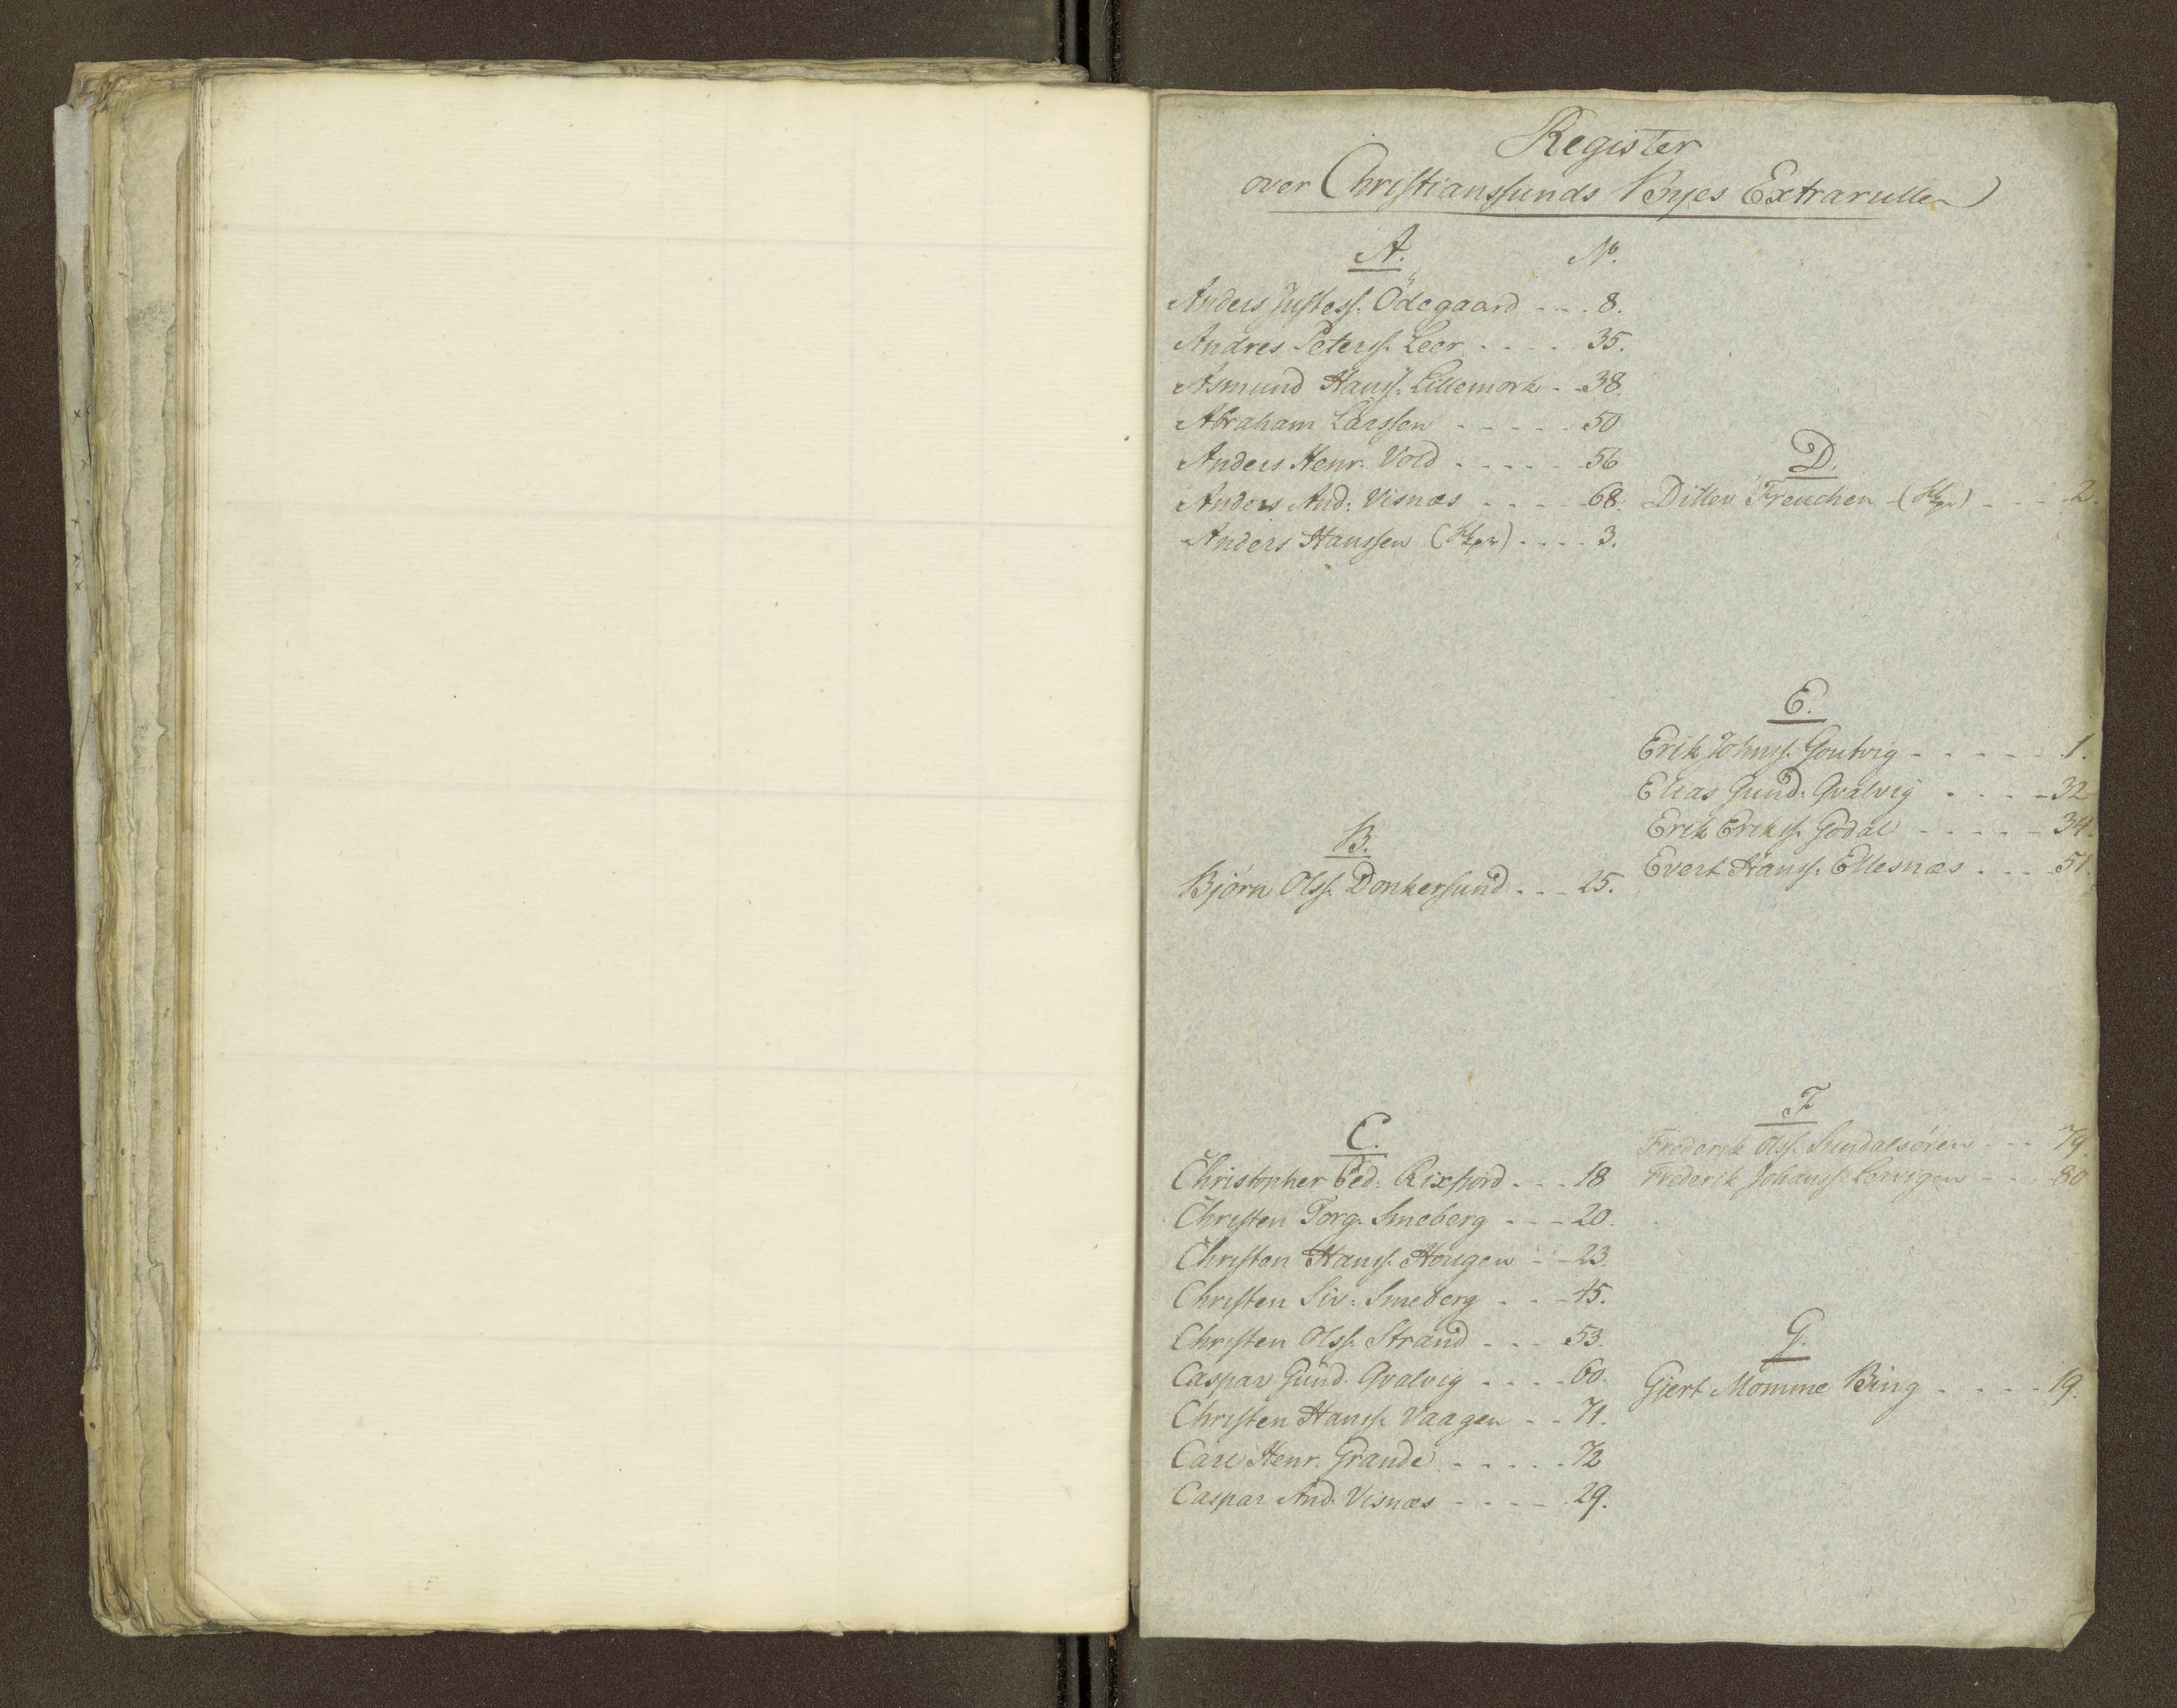 Register
over Christianssunds Byes Extrarulle
A. No.
Anders Justess. Ödegaard - - - 8.
Andres Peterss. Leer - - - - 35.
Asmund Hanss. Lillemork - - 38.
Abraham Larssen - - - - - 50
Anders Henr. Vold - - - - - 56
Anders And: Visnæs - - - - - 68.
Anders Hanssen (Skpr) - - - - 3.
B.
Bjørn Olss. Donkersund - - - 25.
C.
Christopher Ped: Rixfiord - - - 18
Christen Torg. Smeberg - - - 20.
Christen Hanss. Hougen - - 23.
Christen Siv: Smeberg - - - 45.
Christen Olss. Strand - - - 53.
Caspar Gund. Qvalvig - - - - 60.
Christen Hanss. Vaagen - - 71.
Carl Henr. Grande - - - - - 72
Caspar And. Visnæs - - - - 29.
D.
Ditlev Freuchen (Skpr) - - - - 2.
E.
Erik Johnss. Goutvig - - - - - 1.
Elias Gund: Qvalvig - - - - 32
Erik Erikss. Godal - - - - - 34.
Evert Hanss. Ellesnæs - - - - 51.
F
Frederik Olss. Sundalsören - - - 79.
Frederik Johanss. Lervigen - - - 80
G.
Gjert Momme Bing - - - - 19.